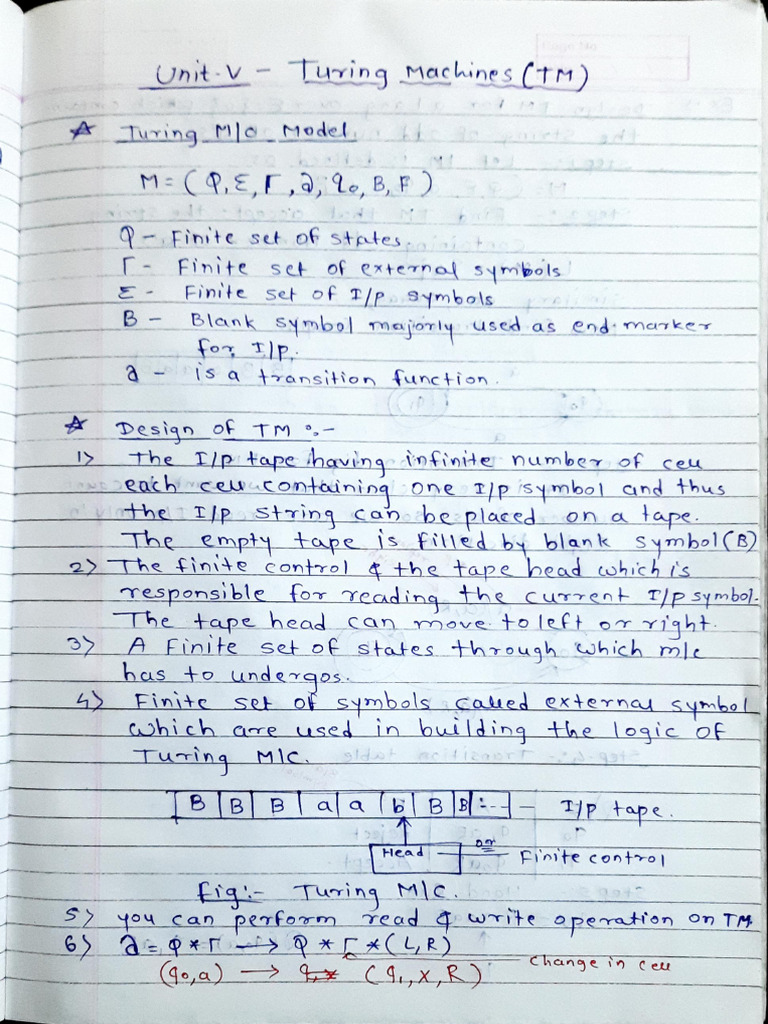 Unit-V - Turing Machines (TM)
☆ Turing M/C Model
M = (Q, Σ, Γ, ∂, q0, B, F)
Q - Finite set of states
Γ - Finite set of external symbols
Σ - Finite set of I/p symbols
B - Blank symbol majorly used as end-marker
for I/p.
∂ - is a transition function.
☆ Design of TM :-
1> The I/p tape having infinite number of cell
each cell containing one I/p symbol and thus
the I/p string can be placed on a tape.
The empty tape is filled by blank symbol (B)
2> The finite control & the tape head which is
responsible for reading the current I/p symbol.
The tape head can move to left or right.
3> A Finite set of states through which m/c
has to undergos.
4> Finite set of symbols called external symbol
which are used in building the logic of
Turing M/C.
B B B a a b B B ... - I/p tape.
Head or Finite control
Fig:- Turing M/C.
5> you can perform read & write operation on TM
6> ∂ = Q * Γ → Q * Γ * (L, R)
(q0, a) → (q1, X, R) change in cell